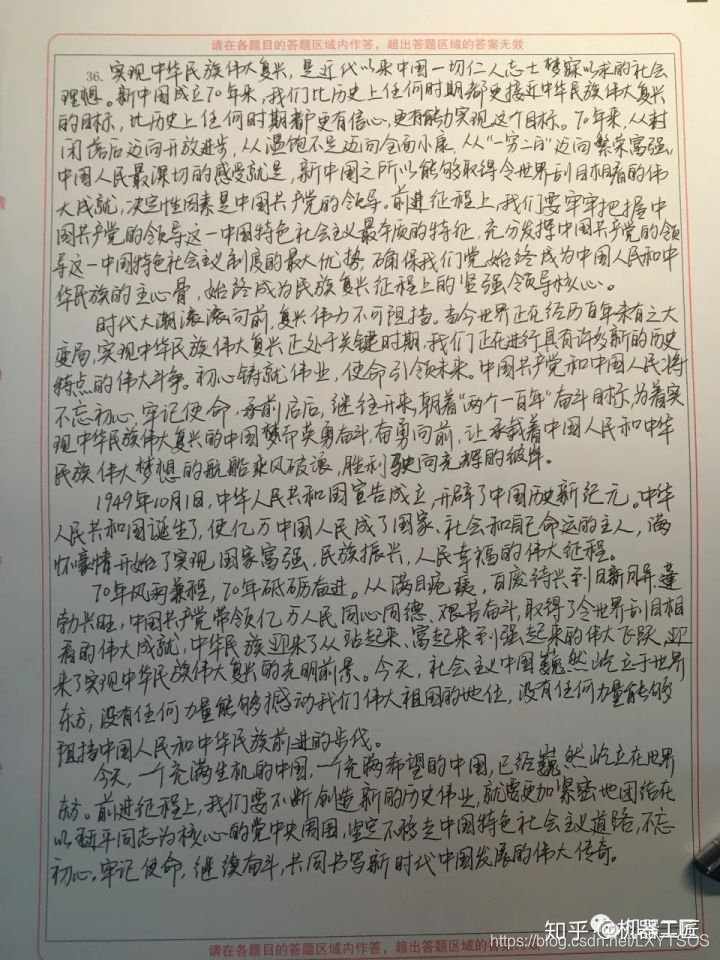 请在各题目的答题区域内作答，超出答题区域的答案无效
36. 实现中华民族伟大复兴，是近代以来中国一切仁人志士梦寐以求的社会
理想。新中国成立70年来，我们比历史上任何时期都更接近中华民族伟大复兴
的目标，比历史上任何时期都更有信心，更有能力实现这个目标。70年来，从封
闭落后迈向开放进步，从温饱不足迈向全面小康，从“一穷二白”迈向繁荣富强，
中国人民最深切的感受就是，新中国之所以能够取得令世界刮目相看的伟
大成就，决定性因素是中国共产党的领导。前进征程上，我们要牢牢把握中
国共产党的领导这一中国特色社会主义最本质的特征，充分发挥中国共产党的领
导这一中国特色社会主义制度的最大优势，确保我们党始终成为中国人民和中
华民族的主心骨，始终成为民族复兴征程上的坚强领导核心。
时代大潮滚滚向前，复兴伟力不可阻挡。当今世界正在经历百年未有之大
变局，实现中华民族伟大复兴正处于关键时期，我们正在进行具有许多新的历史
特点的伟大斗争。初心铸就伟业，使命引领未来。中国共产党和中国人民将
不忘初心、牢记使命，承前启后，继往开来，朝着“两个一百年”奋斗目标，为着实
现中华民族伟大复兴的中国梦而英勇奋斗、奋勇向前，让承载着中国人民和中华
民族伟大梦想的航船乘风破浪，胜利驶向光辉的彼岸。
1949年10月1日，中华人民共和国宣告成立，开辟了中国历史新纪元。中华
人民共和国诞生了，使亿万中国人民成了国家、社会和自己命运的主人，满
怀豪情开始了实现国家富强、民族振兴、人民幸福的伟大征程。
70年风雨兼程，70年砥砺奋进。从满目疮痍，百废待兴到日新月异、蓬
勃兴旺，中国共产党带领亿万人民同心同德、艰苦奋斗，取得了令世界刮目相
看的伟大成就，中华民族迎来了从站起来、富起来到强起来的伟大飞跃，迎
来了实现中华民族伟大复兴的光明前景。今天，社会主义中国巍然屹立于世界
东方，没有任何力量能够撼动我们伟大祖国的地位，没有任何力量能够
阻挡中国人民和中华民族前进的步伐。
今天，一个充满生机的中国，一个充满希望的中国，已经巍然屹立在世界
东方。前进征程上，我们要不断创造新的历史伟业，就要更加紧密地团结在
以 近平同志为核心的党中央周围，坚定不移走中国特色社会主义道路，不忘
初心，牢记使命，继续奋斗，共同书写新时代中国发展的伟大传奇。
知乎 @机器工匠
https://blog.csdn.net/LXYTSOS
请在各题目的答题区域内作答，超出答题区域的答案无效